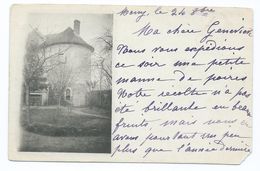 le 24 8bre
Ma chère Geneviève
Nous vous expédions
ce soir une petite
manne de poires
Notre récolte n'a pas
été brillante en beaux
fruits, mais nous en
avons pourtant un peu
plus que l'année dernière